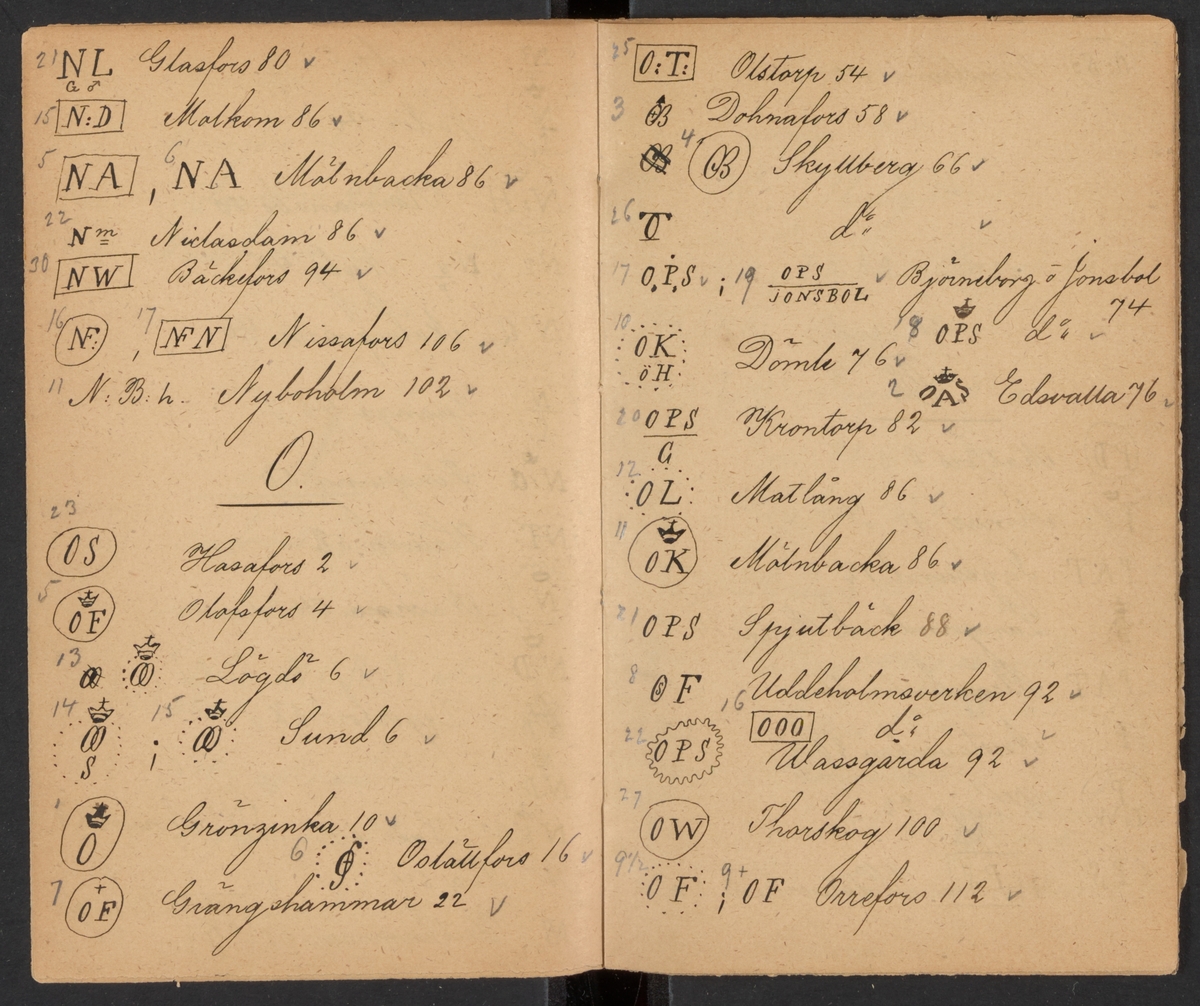 21 NL Glasfors 80 ✓
G ♂
15 N:D Molkom 86 ✓
5 NA , 6 NA Mölnbacka 86 ✓
22 Nm Niclasdam 86 ✓
30 NW Bäckefors 94 ✓
16 NF: , 17 NF N Nissafors 106 ✓
11 N: B: h. Nyboholm 102 ✓
O.
23 OS Hasafors 2 ✓
5 OF Olofsfors 4 ✓
13 Lögdö 6 ✓
14 S ; 15 Sund 6 ✓
1 O Grönzinka 10 ✓
6 Ostättfors 16 ✓
7 OF Grängshammar 22 ✓
25 O:T: Olstorp 54 ✓
3 OB Dohnafors 58 ✓
4 OB Skyllberg 66 ✓
26 do ✓
17 O.P.S ✓ ; 19 OPS ✓ Björneborg o Jonsbol
JONSBOL 74
18 OPS do ✓
10 OK Dömle 76 ✓
öH
2 OAS Edsvalla 76 ✓
20 OPS Krontorp 82 ✓
G
12 OL Matlång 86 ✓
11 OK Mölnbacka 86 ✓
21 OPS Spjutbäck 88 ✓
8 F Uddeholmsverken 92 ✓
16 OOO do ✓
22 OPS Wassgärda 92 ✓
27 OW Thorskog 100 ✓
9 1/2 OF ; 9+ OF Orrefors 112 ✓